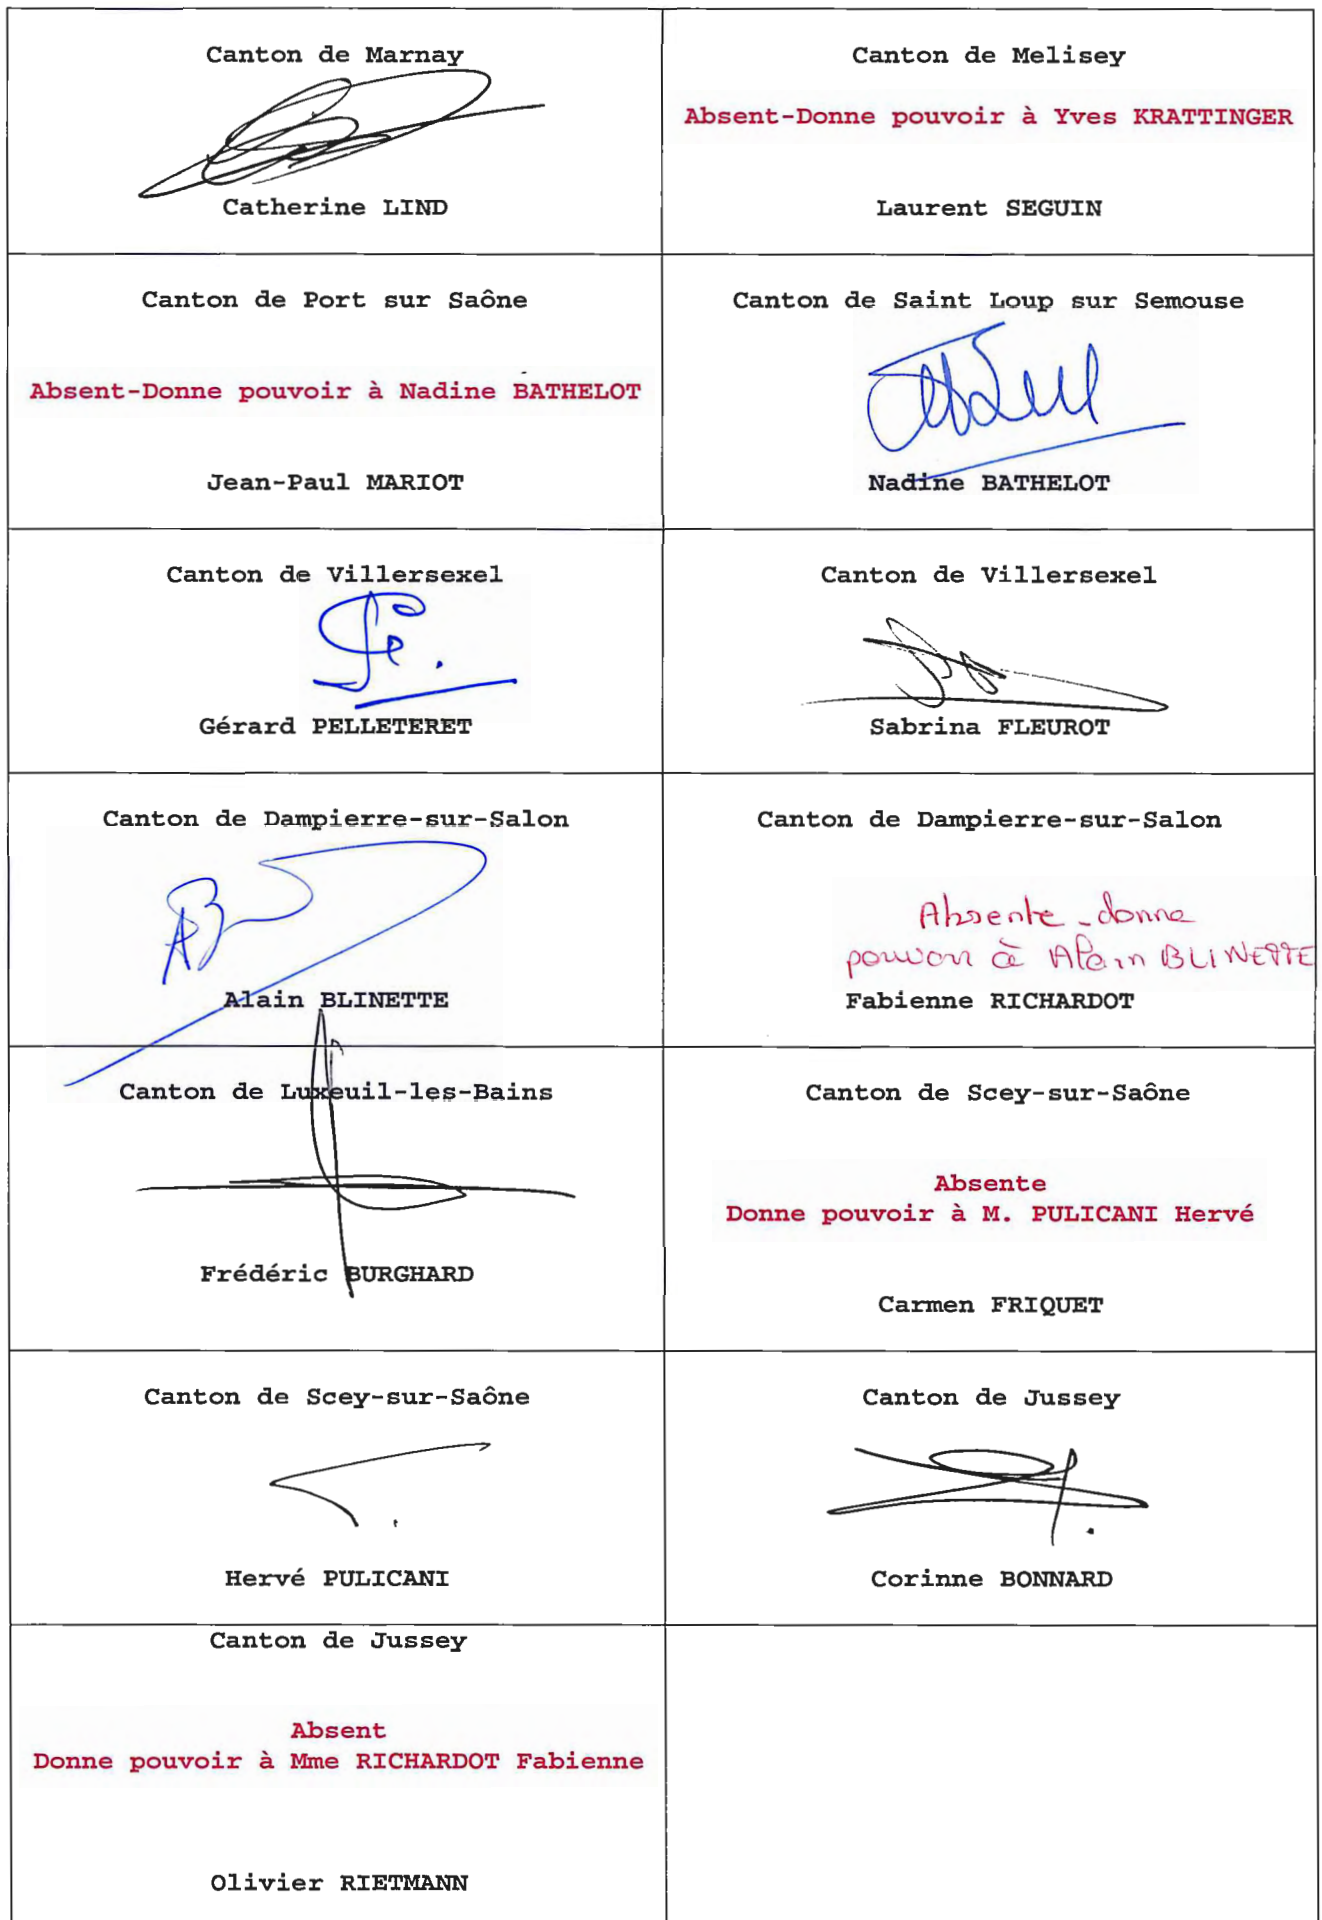 Canton de Marnay
Catherine LIND
Canton de Melisey
Absent-Donne pouvoir à Yves KRATTINGER
Laurent SEGUIN
Canton de Port sur Saône
Absent-Donne pouvoir à Nadine BATHELOT
Jean-Paul MARIOT
Canton de Saint Loup sur Semouse
Nadine BATHELOT
Canton de Villersexel
Gérard PELLETERET
Canton de Villersexel
Sabrina FLEUROT
Canton de Dampierre-sur-Salon
Alain BLINETTE
Canton de Dampierre-sur-Salon
Absente - donne
pouvoir à Alain BLINETTE
Fabienne RICHARDOT
Canton de Luxeuil-les-Bains
Frédéric BURGHARD
Canton de Scey-sur-Saône
Absente
Donne pouvoir à M. PULICANI Hervé
Carmen FRIQUET
Canton de Scey-sur-Saône
Hervé PULICANI
Canton de Jussey
Corinne BONNARD
Canton de Jussey
Absent
Donne pouvoir à Mme RICHARDOT Fabienne
Olivier RIETMANN